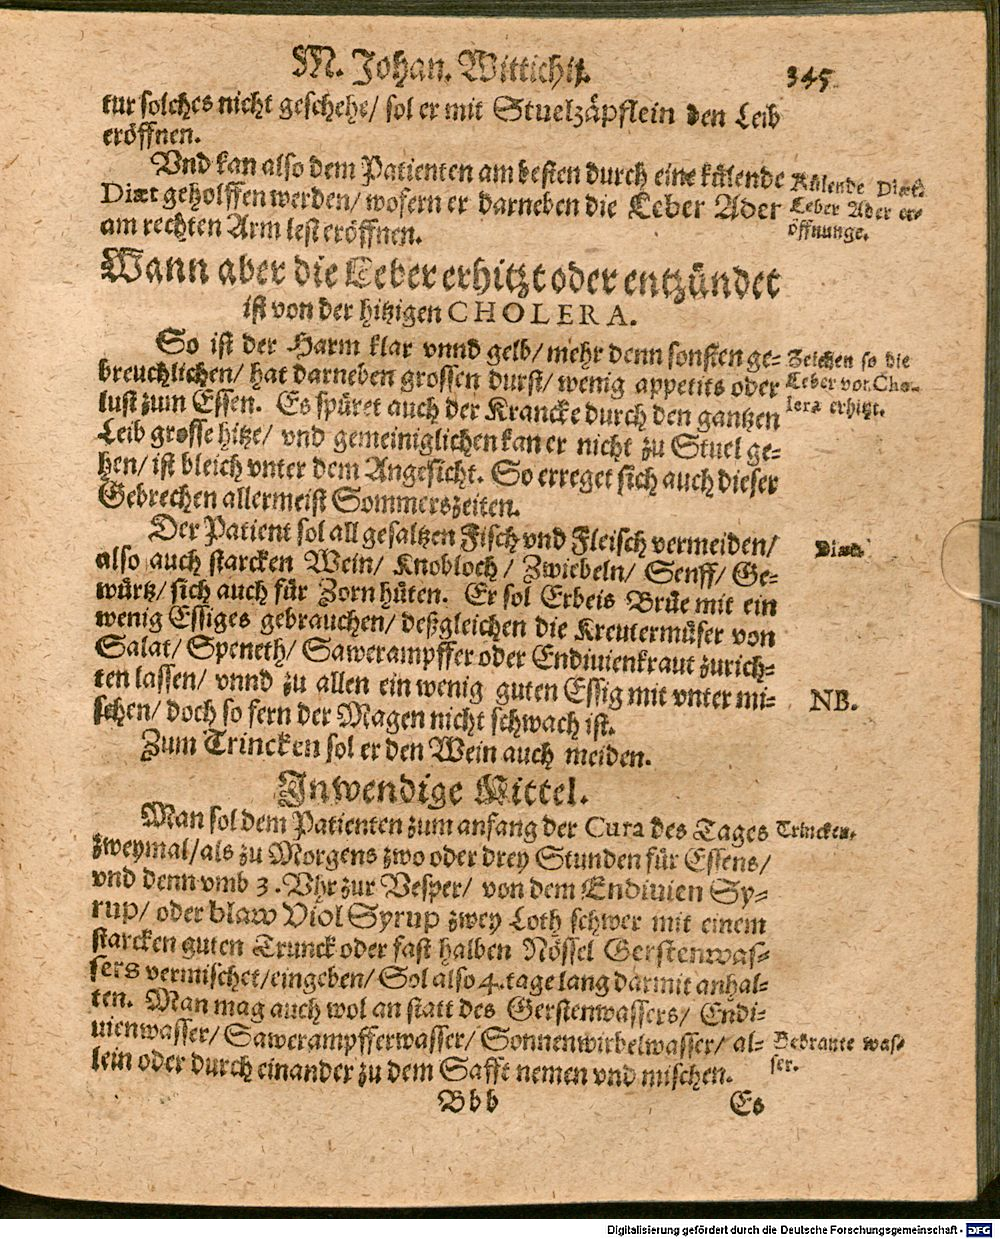 M. Johan. Wittichii. 345
tur solches nicht geschehe/ sol er mit Stuelzäpflein den Leib
eröffnen.
Vnd kan also dem Patienten am besten durch eine külende
Diæt geholffen werden/ wofern er darneben die Leber Ader
am rechten Arm lest eröffnen.
Külende Diæt.
Leber Ader er-
öffnunge.
Wann aber die Leber erhitzt oder entzündet
ist von der hitzigen CHOLERA.
So ist der Harm klar vnnd gelb/ mehr denn sonsten ge-
breuchlichen/ hat darneben grossen durst/ wenig appetits oder
lust zum Essen. Es spüret auch der Krancke durch den gantzen
Leib grosse hitze/ vnd gemeiniglichen kan er nicht zu Stuel ge-
hen/ ist bleich vnter dem Angesicht. So erreget sich auch dieser
Gebrechen allermeist Sommerszeiten.
Zeichen so die
Leber von Cho-
lera erhitzt.
Der Patient sol all gesaltzen Fisch vnd Fleisch vermeiden/
also auch starcken Wein/ Knobloch/ Zwiebeln/ Senff/ Ge-
würtz/ sich auch für Zorn hüten. Er sol Erbeis Brüe mit ein
wenig Essiges gebrauchen/ deßgleichen die Kreutermüser von
Salat/ Speneth/ Sawerampffer oder Endiuienkraut zurich-
ten lassen/ vnnd zu allen ein wenig guten Essig mit vnter mi-
schen/ doch so fern der Magen nicht schwach ist.
Diæta
NB.
Zum Trincken sol er den Wein auch meiden.
Inwendige Mittel.
Man sol dem Patienten zum anfang der Cura des Tages
zweymal/ als zu Morgens zwo oder drey Stunden für Essens/
vnd denn vmb 3. Vhr zur Vesper/ von dem Endiuien Sy-
rup/ oder blaw Viol Syrup zwey Loth schwer mit einem
starcken guten Trunck oder fast halben Nössel Gerstenwas-
sers vermischet/ eingeben/ Sol also 4. tage lang darmit anhal-
ten. Man mag auch wol an statt des Gerstenwassers/ Endi-
uienwasser/ Sawerampfferwasser/ Sonnenwirbelwasser/ al-
lein oder durch einander zu dem Safft nemen vnd mischen.
Trincken.
Gebrante was-
ser.
Bbb Es
Digitalisierung gefördert durch die Deutsche Forschungsgemeinschaft - DFG